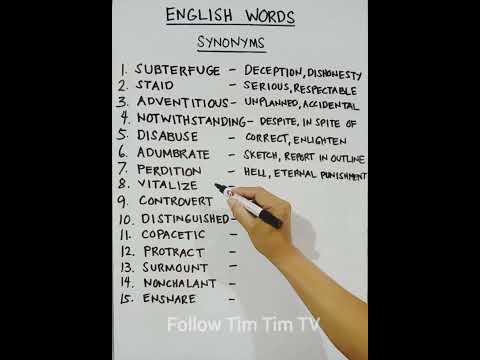 ENGLISH WORDS
SYNONYMS
1. SUBTERFUGE - DECEPTION, DISHONESTY
2. STAID - SERIOUS, RESPECTABLE
3. ADVENTITIOUS - UNPLANNED, ACCIDENTAL
4. NOTWITHSTANDING - DESPITE, IN SPITE OF
5. DISABUSE - CORRECT, ENLIGHTEN
6. ADUMBRATE - SKETCH, REPORT IN OUTLINE
7. PERDITION - HELL, ETERNAL PUNISHMENT
8. VITALIZE -
9. CONTROVERT
10. DISTINGUISHED -
11. COPACETIC -
12. PROTRACT -
13. SURMOUNT -
14. NONCHALANT -
15. ENSNARE -
Follow Tim Tim TV